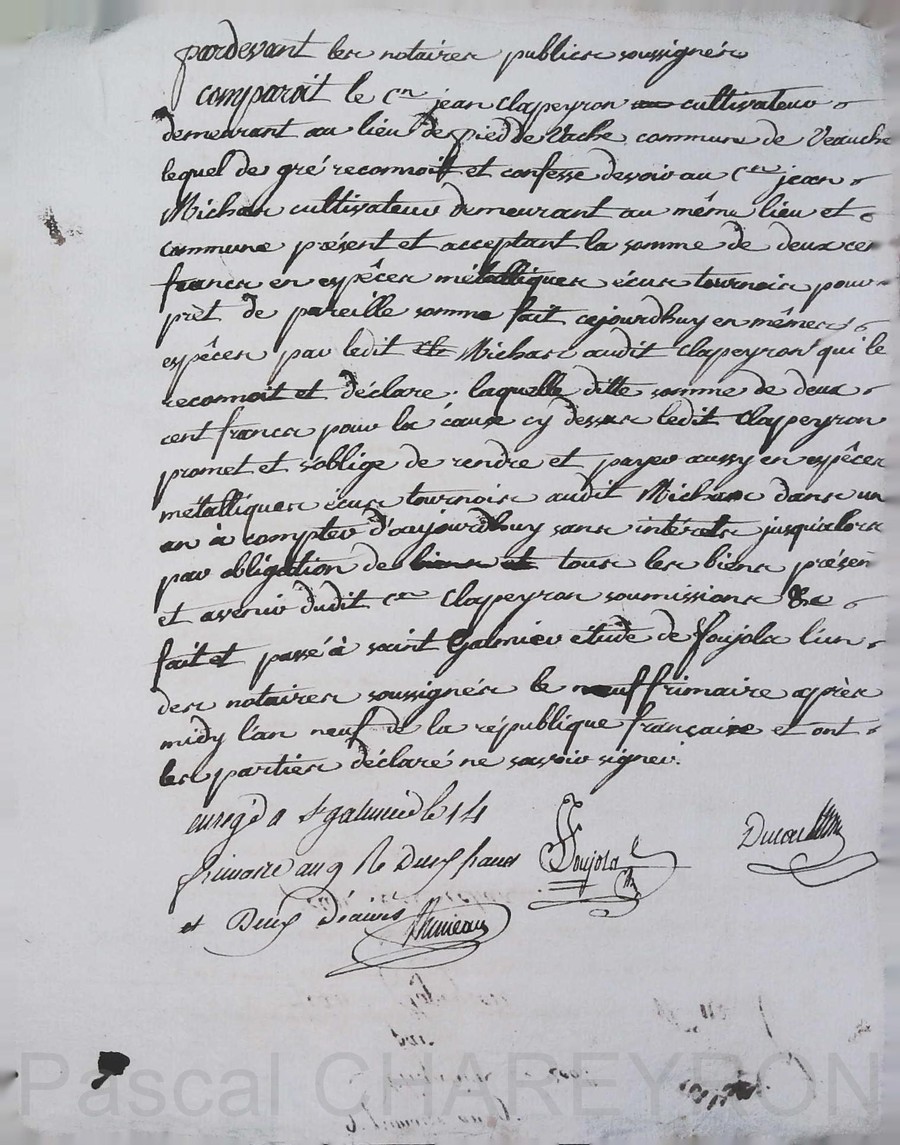 pardevant les notaires publics soussignés
comparoit le Cen jean Clapeyron cultivateur
demeurant au lieu de pied de Vache commune de Veauche
lequel de gré reconnoit et confesse devoir au Cen jean
Michas cultivateur demeurant au même lieu et
commune présent et acceptant la somme de deux cen
francs en espêces métalliques écus tournois pour
prèt de pareille somme fait cejourdhuy en mêmes
espêces par ledit Michas audit Clapeyron qui le
reconnoit et déclare, laquelle ditte somme de deux
cent francs pour la cause cy dessus ledit Clapeyron
promet et s'oblige de rendre et payer aussy en espêces
métalliques écus tournois audit Michas dans un
an à compter d'aujourdhuy sans intérets jusqualors
par obligation de tous les biens présen
et avenir dudit Cen Clapeyron soumissions &a
fait et passé à saint Galmier étude de foujols l'un
des notaires soussignés le neuf frimaire après
midy l'an neuf de la république française et ont
les parties déclaré ne savoir signer.
enregé a St galmier le 14
frimaire an 9 R Deux francs
et Deux Décimes
Foujols
Pascal CHAREYRON